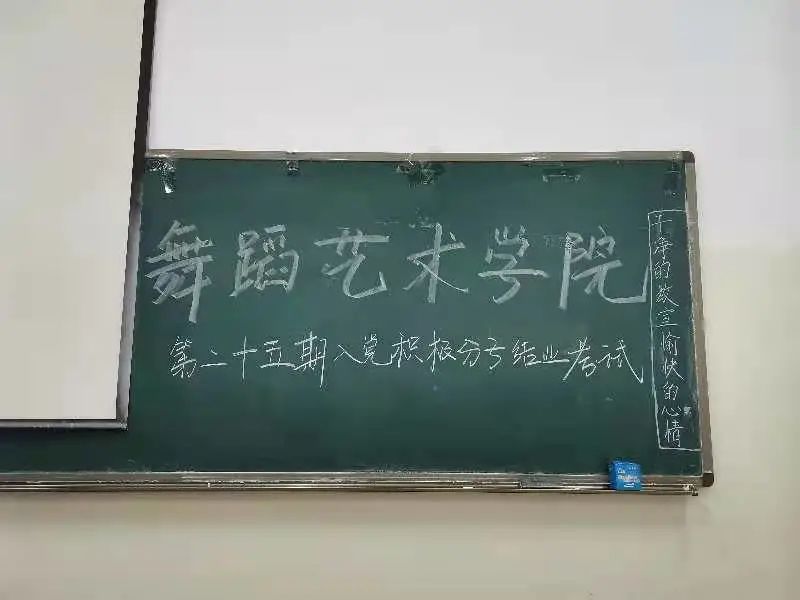 舞蹈艺术学院
第二十五期入党积极分子结业考试
干净的教室愉快的心情